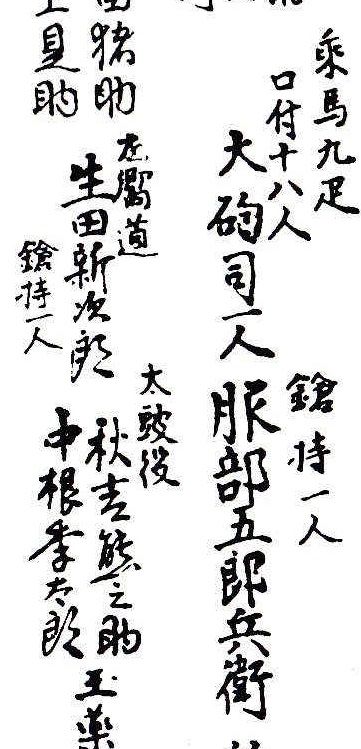 乗馬九疋
口付十八人
大砲司一人
鎗持一人
服部五郎兵衛
田猪助
上見助
左嚮道
生田新次郎
鎗持一人
太鼓役
秋吉熊之助
中根季太郎
玉薬